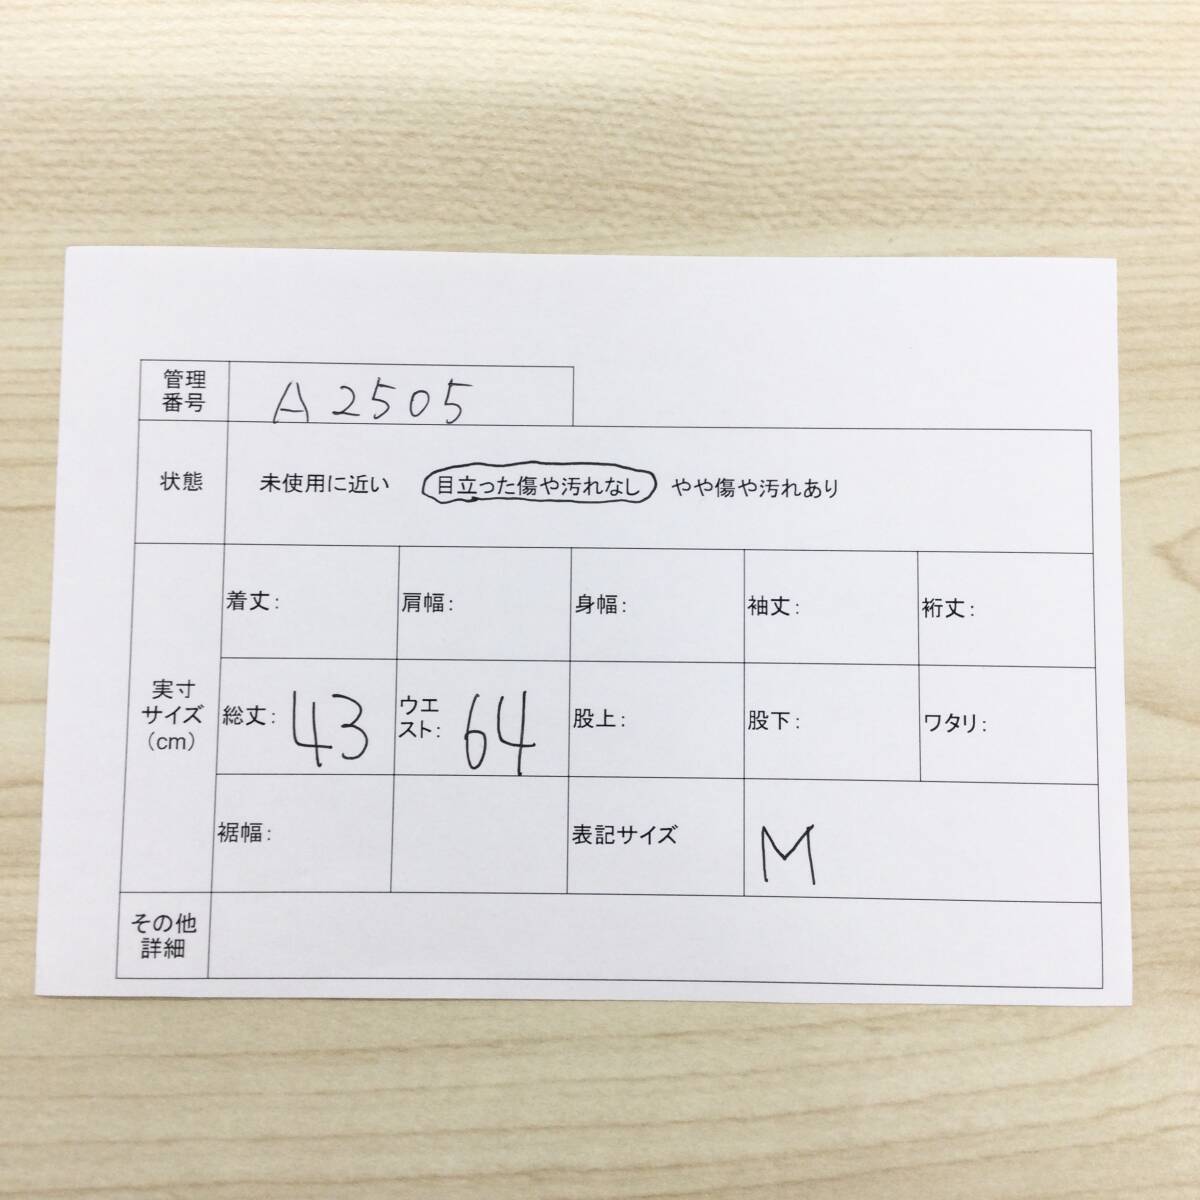 管理
番号
A2505
状態
未使用に近い 目立った傷や汚れなし やや傷や汚れあり
実寸
サイズ
(cm)
着丈: 肩幅: 身幅: 袖丈: 裄丈:
総丈: 43 ウエ
スト: 64 股上: 股下: ワタリ:
裾幅: 表記サイズ M
その他
詳細